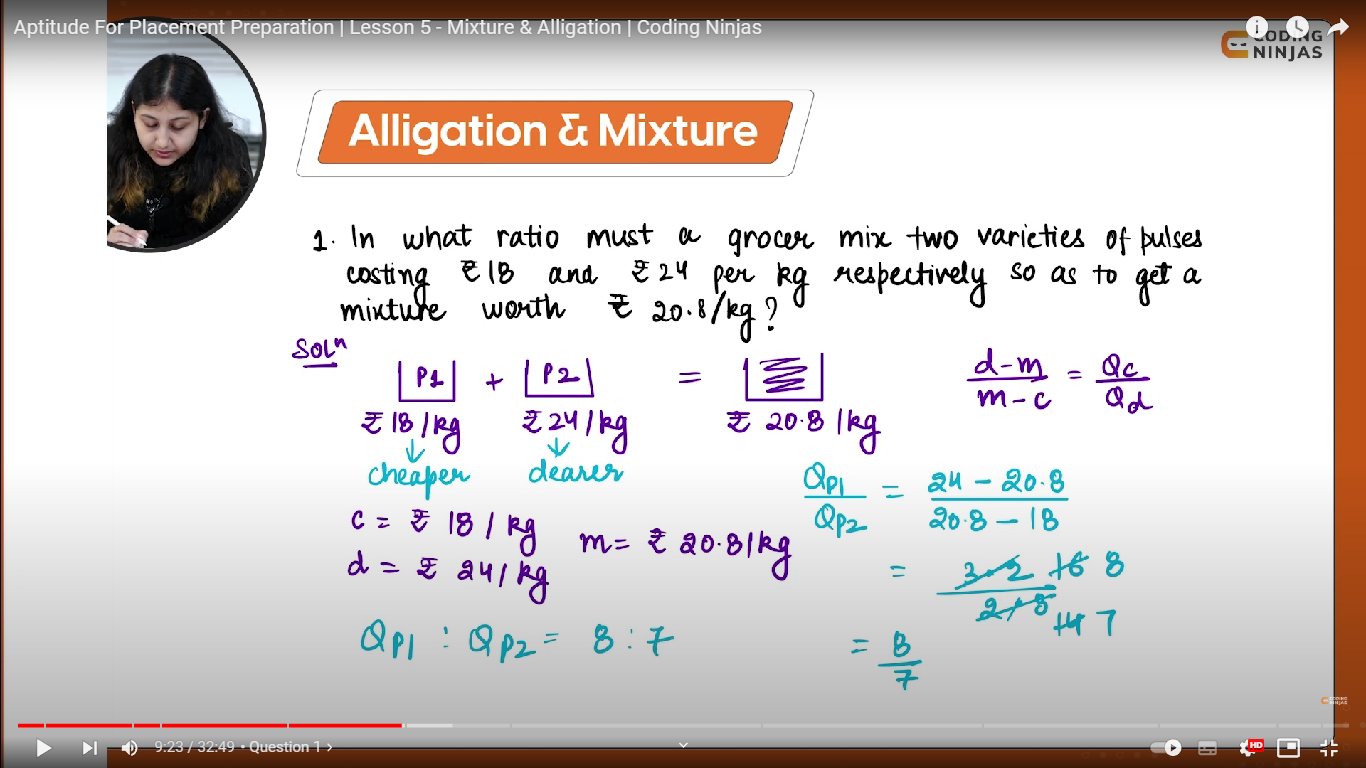 Aptitude For Placement Preparation | Lesson 5 - Mixture & Alligation | Coding Ninjas
CODING
NINJAS
Alligation & Mixture
1. In what ratio must a grocer mix two varieties of pulses
costing ₹18 and ₹24 per kg respectively so as to get a
mixture worth ₹ 20.8/kg?
Solⁿ
P1 + P2 =
₹18/kg ₹24/kg ₹ 20.8/kg
d-m/m-c = Qc/Qd
cheaper dearer
c = ₹ 18/kg
d = ₹ 24/kg
m = ₹ 20.8/kg
QP1/QP2 = 24 - 20.8/20.8 - 18
= 3.2 16 8
2.8 14 7
QP1 : QP2 = 8:7
= 8/7
CODING
NINJAS
9:23 / 32:49 • Question 1 >
HD